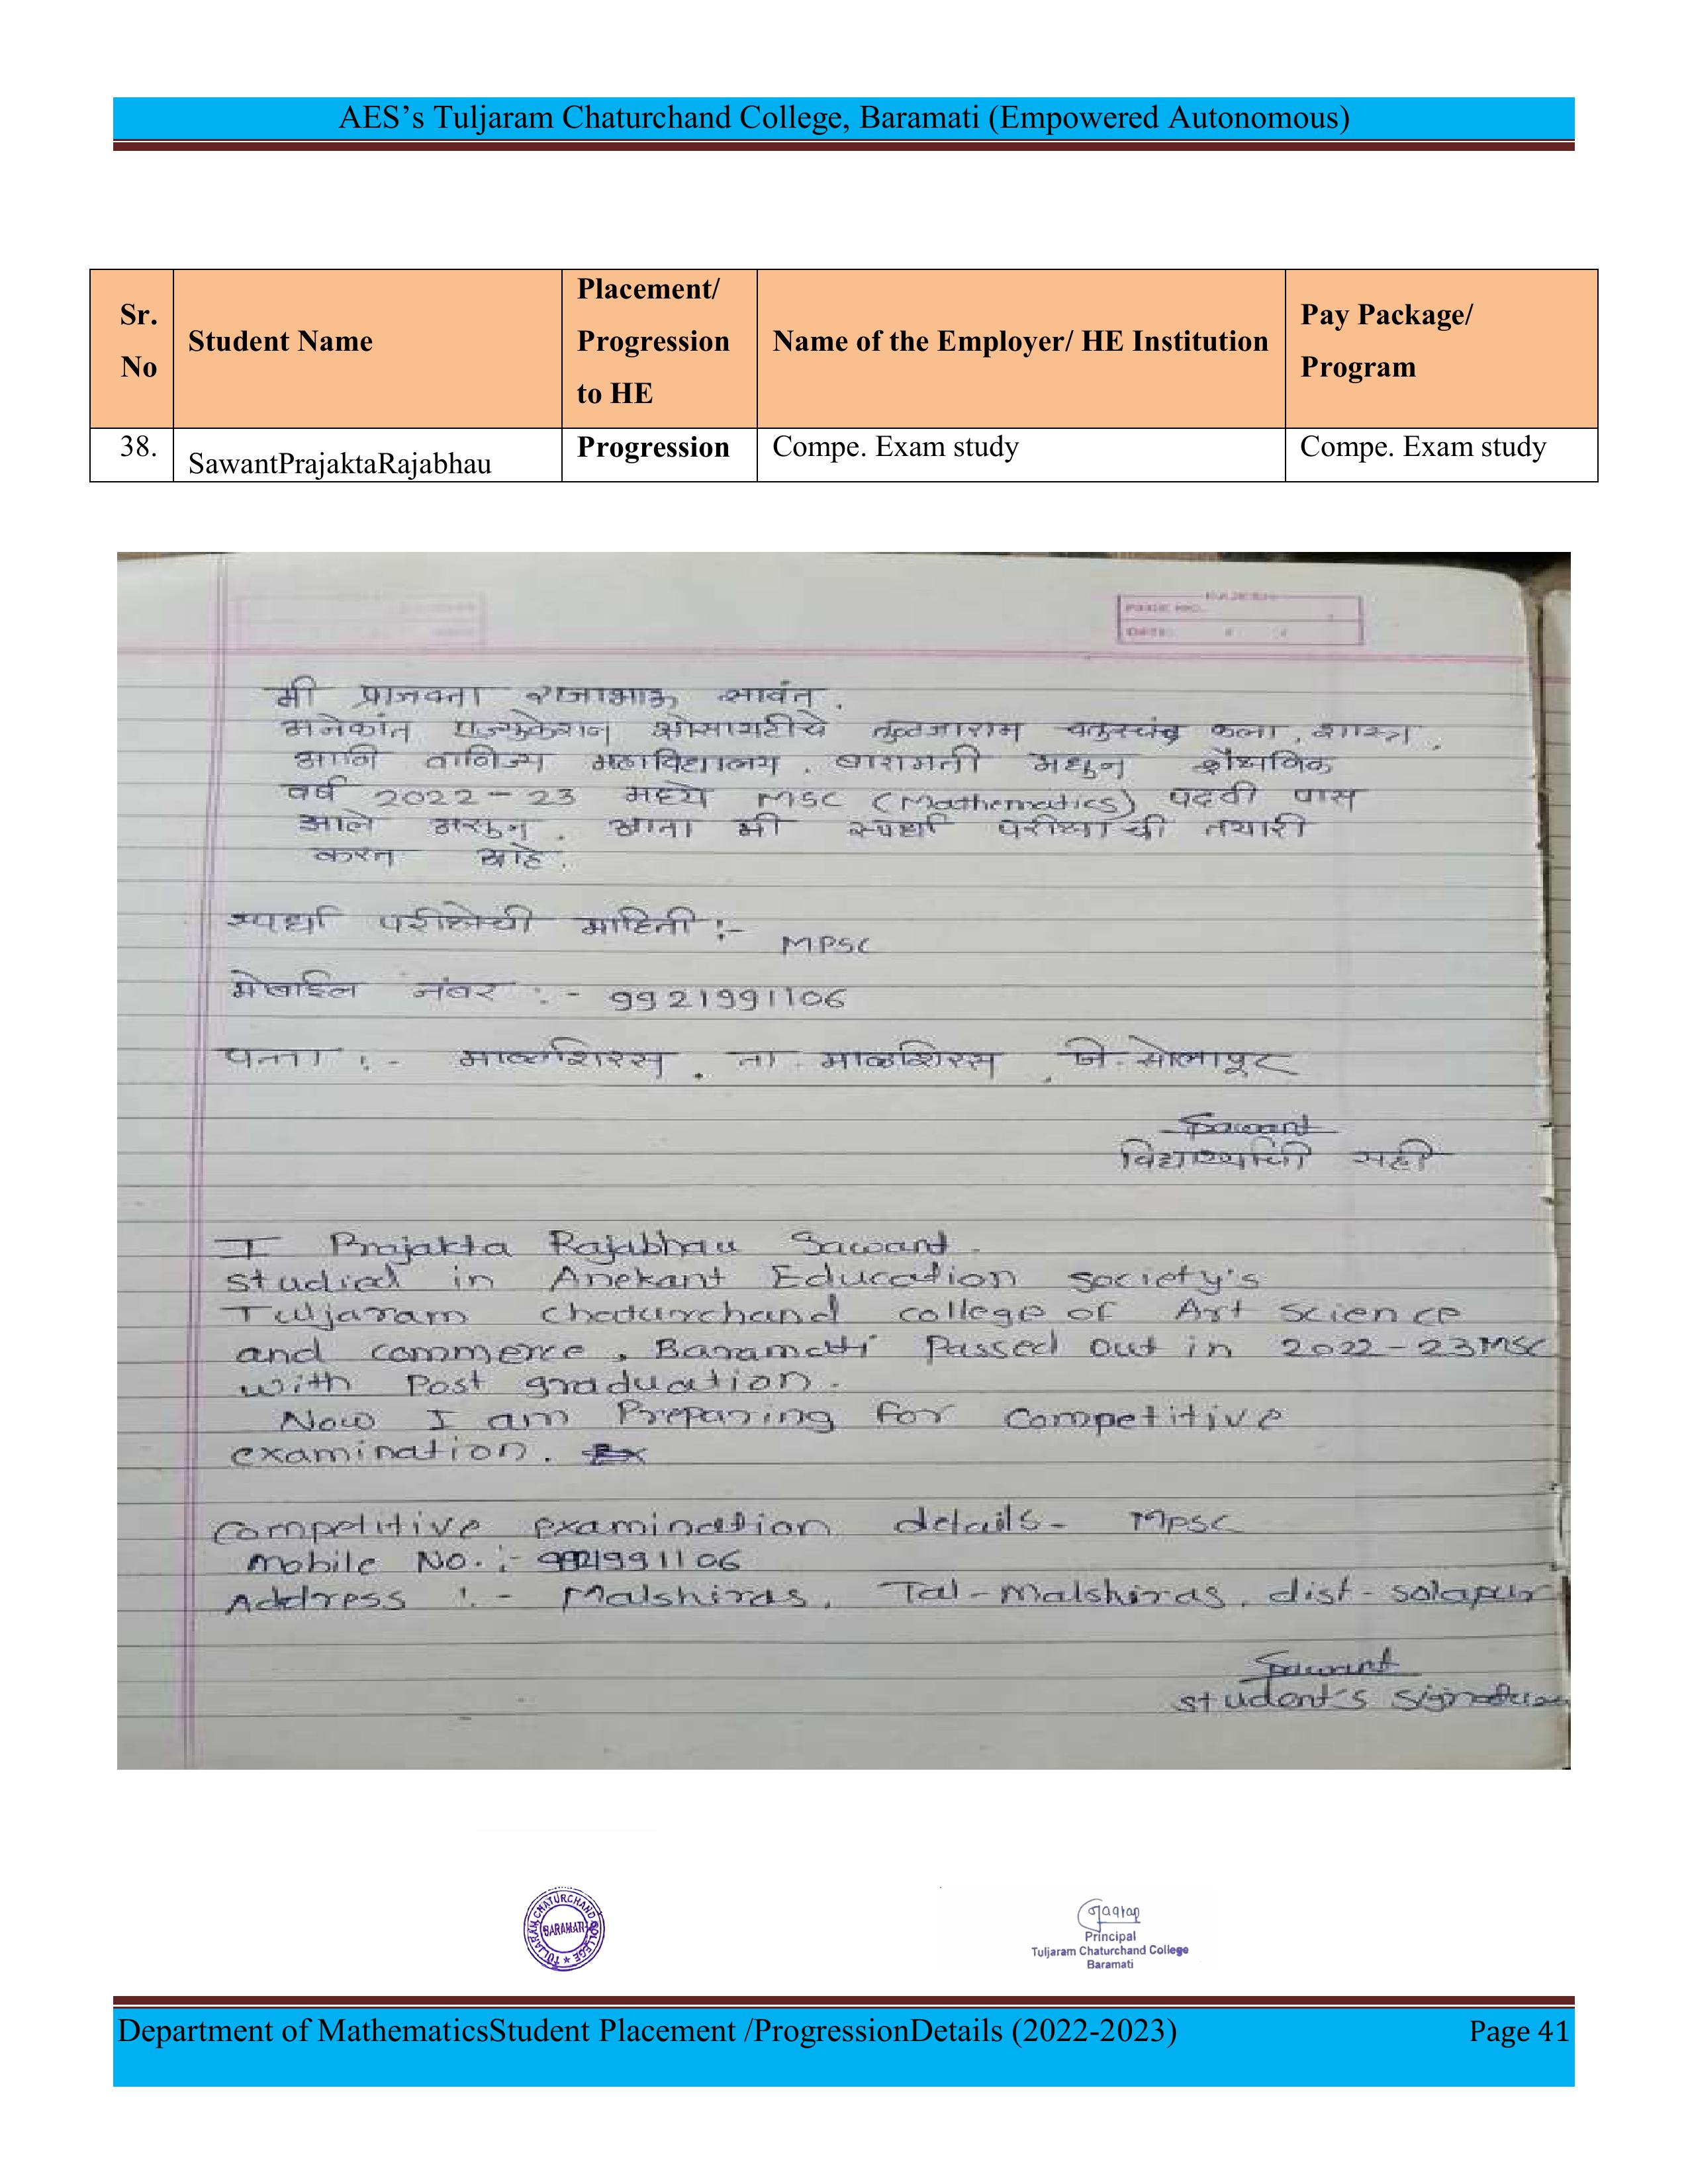 AES’s Tuljaram Chaturchand College, Baramati (Empowered Autonomous)
Sr. No
Student Name
Placement/ Progression to HE
Name of the Employer/ HE Institution
Pay Package/ Program
38.
SawantPrajaktaRajabhau
Progression
Compe. Exam study
Compe. Exam study
PAGE NO.
DATE: / /
मी प्राजक्ता राजाभाऊ सावंत.
अनेकांत एज्युकेशन सोसायटीचे तुळजाराम चतुरचंद कला, शास्त्र,
आणि वाणिज्य महाविद्यालय, बारामती मधुन शैक्षणिक
वर्ष 2022-23 मध्ये MSC (Mathematics) पदवी पास
आले असुन. आता मी स्पर्धा परीक्षांची तयारी
करत आहे.
स्पर्धा परीक्षेची माहिती :- MPSC
मोबाईल नंबर :- 9921991106
पत्ता :- माळशिरस, ता. माळशिरस, जि. सोलापूर
Sawant
विद्यार्थ्याची सही
I Prajakta Rajabhau Sawant.
studied in Anekant Education society's
Tuljaram chaturchand college of Art science
and commerce, Baramati Passed out in 2022-23 MSC
with Post graduation.
Now I am Preparing for competitive
examination.
competitive examination details- MPSC
mobile No. :- 9921991106
Address :- Malshiras, Tal-malshiras, dist-solapur
Sawant
student's signature
TULJARAM CHATURCHAND COLLEGE
BARAMATI
Principal
Tuljaram Chaturchand College
Baramati
Department of MathematicsStudent Placement /ProgressionDetails (2022-2023) Page 41